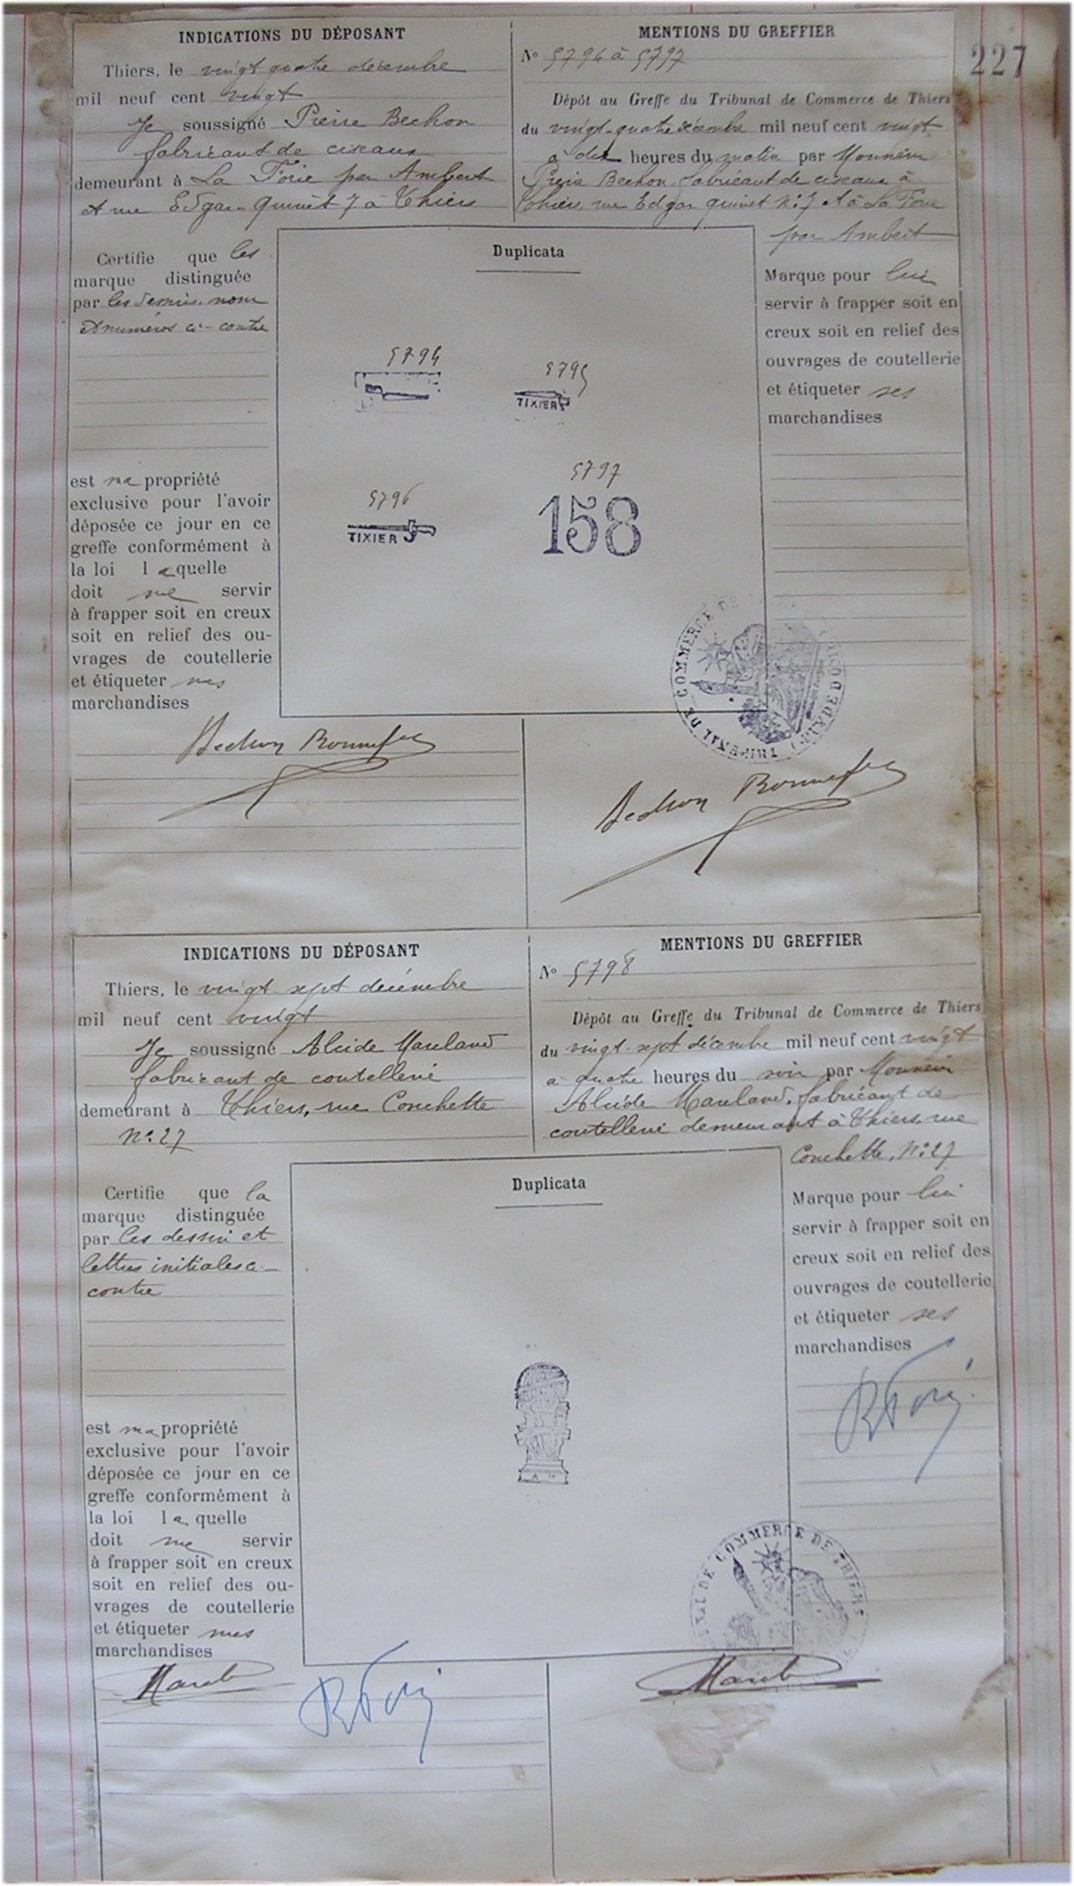 227
INDICATIONS DU DÉPOSANT
Thiers, le vingt quatre décembre
mil neuf cent vingt
Je soussigné Pierre Bechon
fabricant de ciseaux
demeurant à La Forie par Ambert
et rue Edgar-Quinet 7 à Thiers
MENTIONS DU GREFFIER
No 5794 à 5797
Dépôt au Greffe du Tribunal de Commerce de Thiers
du vingt-quatre décembre mil neuf cent vingt
a dix heures du matin par Monsieur
Pierre Bechon, fabricant de ciseaux à
Thiers, rue Edgar quinet No: 7 et à La Forie
par Ambert
Certifie que les
marque distinguée
par les dessins, nom
et numéros ci-contre
est ma propriété
exclusive pour l'avoir
déposée ce jour en ce
greffe conformément à
la loi laquelle
doit me servir
à frapper soit en creux
soit en relief des ou-
vrages de coutellerie
et étiqueter mes
marchandises
Duplicata
5794
5795
TIXIER
5796
TIXIER
5797
158
Marque pour lui
servir à frapper soit en
creux soit en relief des
ouvrages de coutellerie
et étiqueter ses
marchandises
TRIBUNAL DE COMMERCE DE
Bechon Bonnefoy
Bechon Bonnefoy
INDICATIONS DU DÉPOSANT
Thiers, le vingt sept décembre
mil neuf cent vingt
Je soussigné Alcide
fabricant de coutellerie
demeurant à Thiers, rue Conchette
No: 27
MENTIONS DU GREFFIER
No 5798
Dépôt au Greffe du Tribunal de Commerce de Thiers
du vingt-sept décembre mil neuf cent vingt
a quatre heures du soir par Monsieur
Alcide fabricant de
coutellerie demeurant à Thiers, rue
Conchette, No: 27
Certifie que la
marque distinguée
par les dessin et
lettres initiales ci-
contre
est ma propriété
exclusive pour l'avoir
déposée ce jour en ce
greffe conformément à
la loi la quelle
doit me servir
à frapper soit en creux
soit en relief des ou-
vrages de coutellerie
et étiqueter mes
marchandises
Duplicata
A M
Marque pour lui
servir à frapper soit en
creux soit en relief des
ouvrages de coutellerie
et étiqueter ses
marchandises
DE COMMERCE DE THIERS